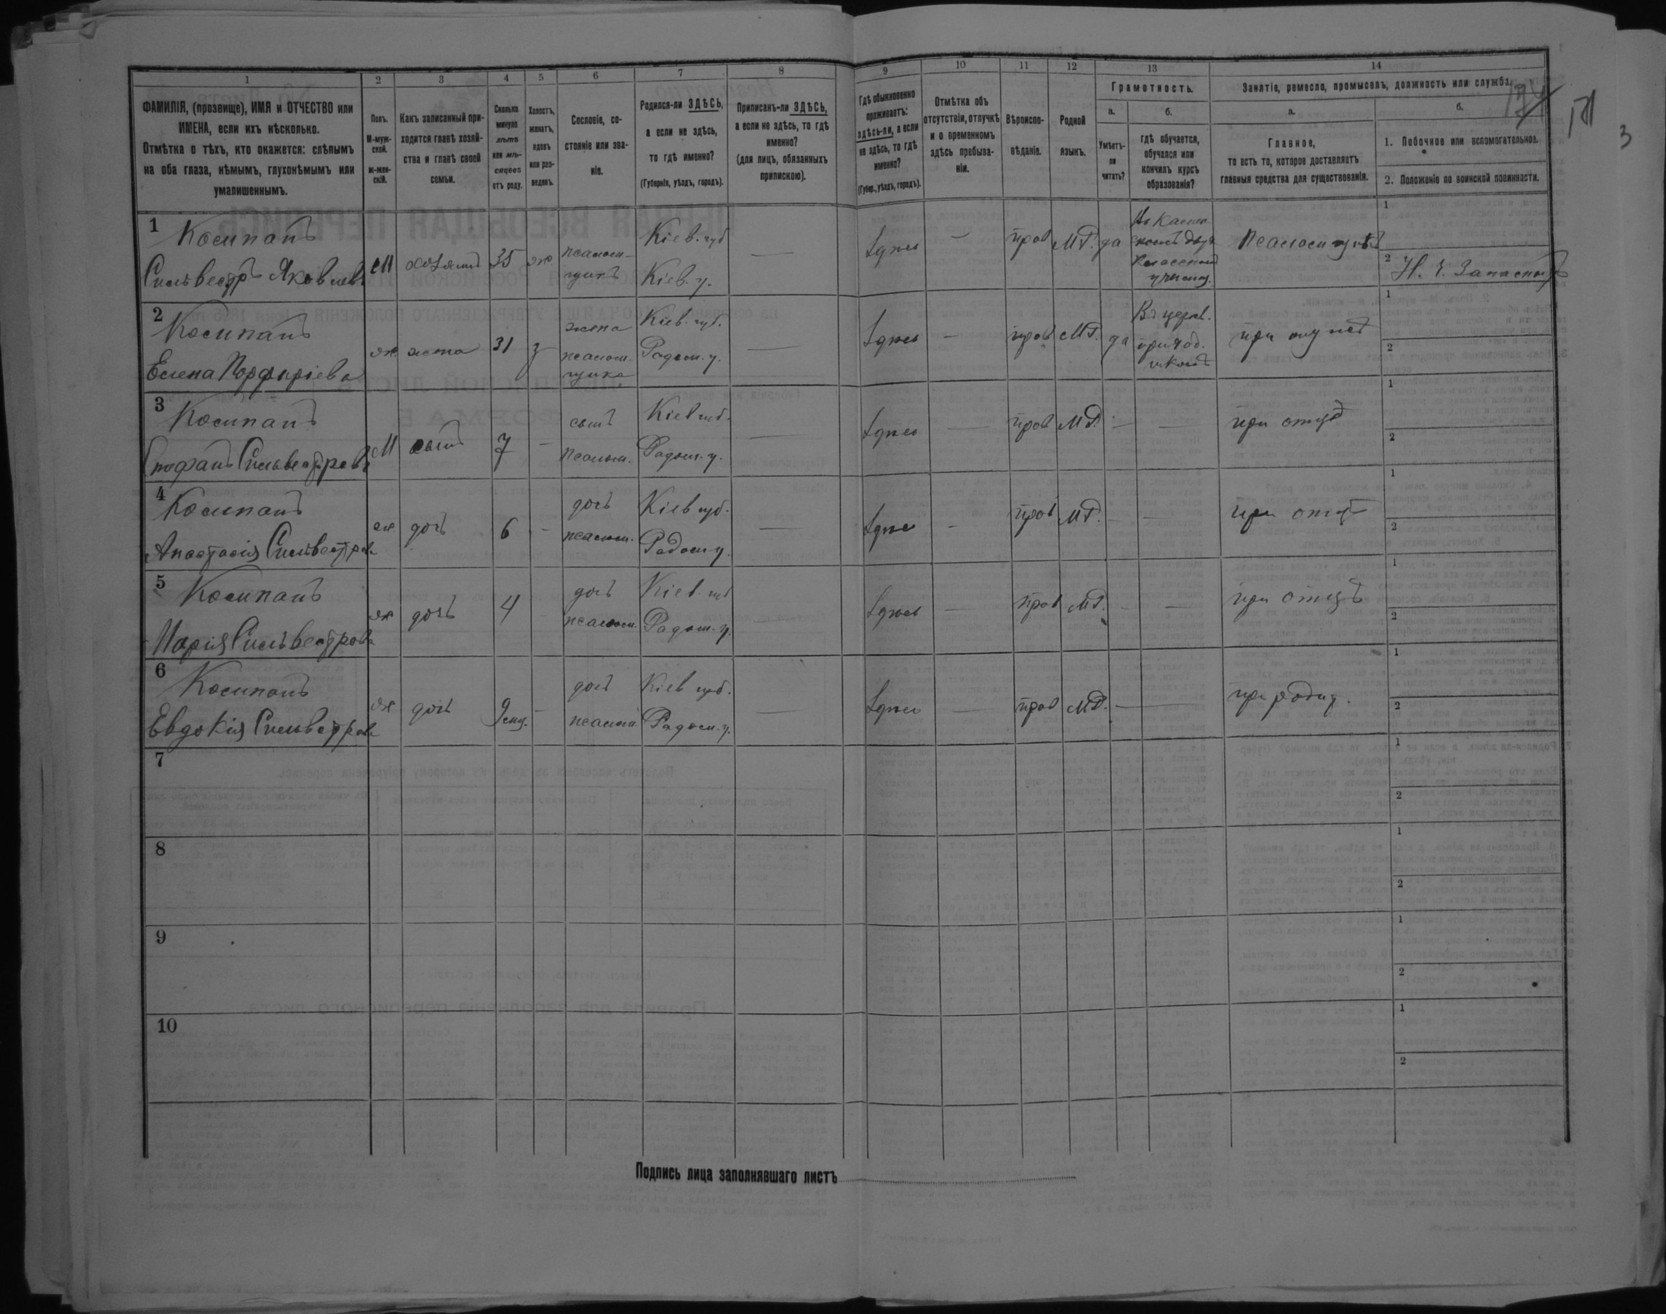 1 2 3 4 5 6 7 8 9 10 11 12 13 14
ФАМИЛІЯ, (прозвище), ИМЯ и ОТЧЕСТВО или
ИМЕНА, если ихъ нѣсколько.
Отмѣтка о тѣхъ, кто окажется: слѣпымъ
на оба глаза, нѣмымъ, глухонѣмымъ или
умалишеннымъ.
Полъ.
М-муж-
ской.
ж-жен-
скій.
Какъ записанный при-
ходится главѣ хозяй-
ства и главѣ своей
семьи.
Сколько
минуло
лѣтъ
или мѣ-
сяцевъ
отъ роду.
Холостъ,
женатъ,
вдовъ
или раз-
веденъ.
Сословіе, со-
стояніе или зва-
ніе.
Родился-ли ЗДѢСЬ,
а если не здѣсь,
то гдѣ именно?
(Губернія, уѣздъ, городъ).
Приписанъ-ли ЗДѢСЬ,
а если не здѣсь, то гдѣ
именно?
(для лицъ, обязанныхъ
припискою).
Гдѣ обыкновенно
проживаетъ:
здѣсь-ли, а если
не здѣсь, то гдѣ
именно?
(Губер., уѣздъ, городъ).
Отмѣтка объ
отсутствіи, отлучкѣ
и о временномъ
здѣсь пребыва-
ніи.
Вѣроиспо-
вѣданіе.
Родной
языкъ.
Грамотность.
а.
Умѣетъ-
ли
читать?
б.
гдѣ обучается,
обучался или
кончилъ курсъ
образованія?
Занятіе, ремесло, промыселъ, должность или служба.
а.
Главное,
то есть то, которое доставляетъ
главныя средства для существованія.
б.
1. Побочное или вспомогательное.
2. Положеніе по воинской повинности.
3
1
Косипанъ
Сильвестръ Яковлевъ
М хозяинъ 35 ж
псалом-
щикъ
Кіев. губ
Кіев. у.
—
здѣсь — прав М.Р. да
училищ.
Псаломщикъ
1
2
Н. Ч. Запасный
2
Косипанъ
Елена Порфиріева
ж жена 31 з
жена
псалом-
щика
Кіев. губ.
Радом. у.
—
здѣсь — прав М.Р. да
Въ церков.
приход.
школѣ
при мужѣ
1
2
3
Косипанъ
Стефанъ Сильвестровъ
М сынъ 7 —
сынъ
псалом.
Кіев губ.
Радом. у.
—
здѣсь — прав М.Р. — —
при отцѣ
1
2
4
Косипанъ
Анастасія Сильвестрова
ж дочь 6 —
дочь
псалом.
Кіев губ.
Радом. у.
—
здѣсь — прав М.Р. — —
при отцѣ
1
2
5
Косипанъ
Марія Сильвестрова
ж дочь 4 —
дочь
псалом.
Кіев губ
Радом. у.
—
здѣсь — прав М.Р. — —
при отцѣ
1
2
6
Косипанъ
Евдокія Сильвестрова
ж дочь 9 мѣс. —
дочь
псалом
Кіев губ.
Радом. у.
—
здѣсь — прав М.Р. — —
при родит.
1
2
7
1
2
8
1
2
9
1
2
10
1
2
Подпись лица заполнявшаго листъ